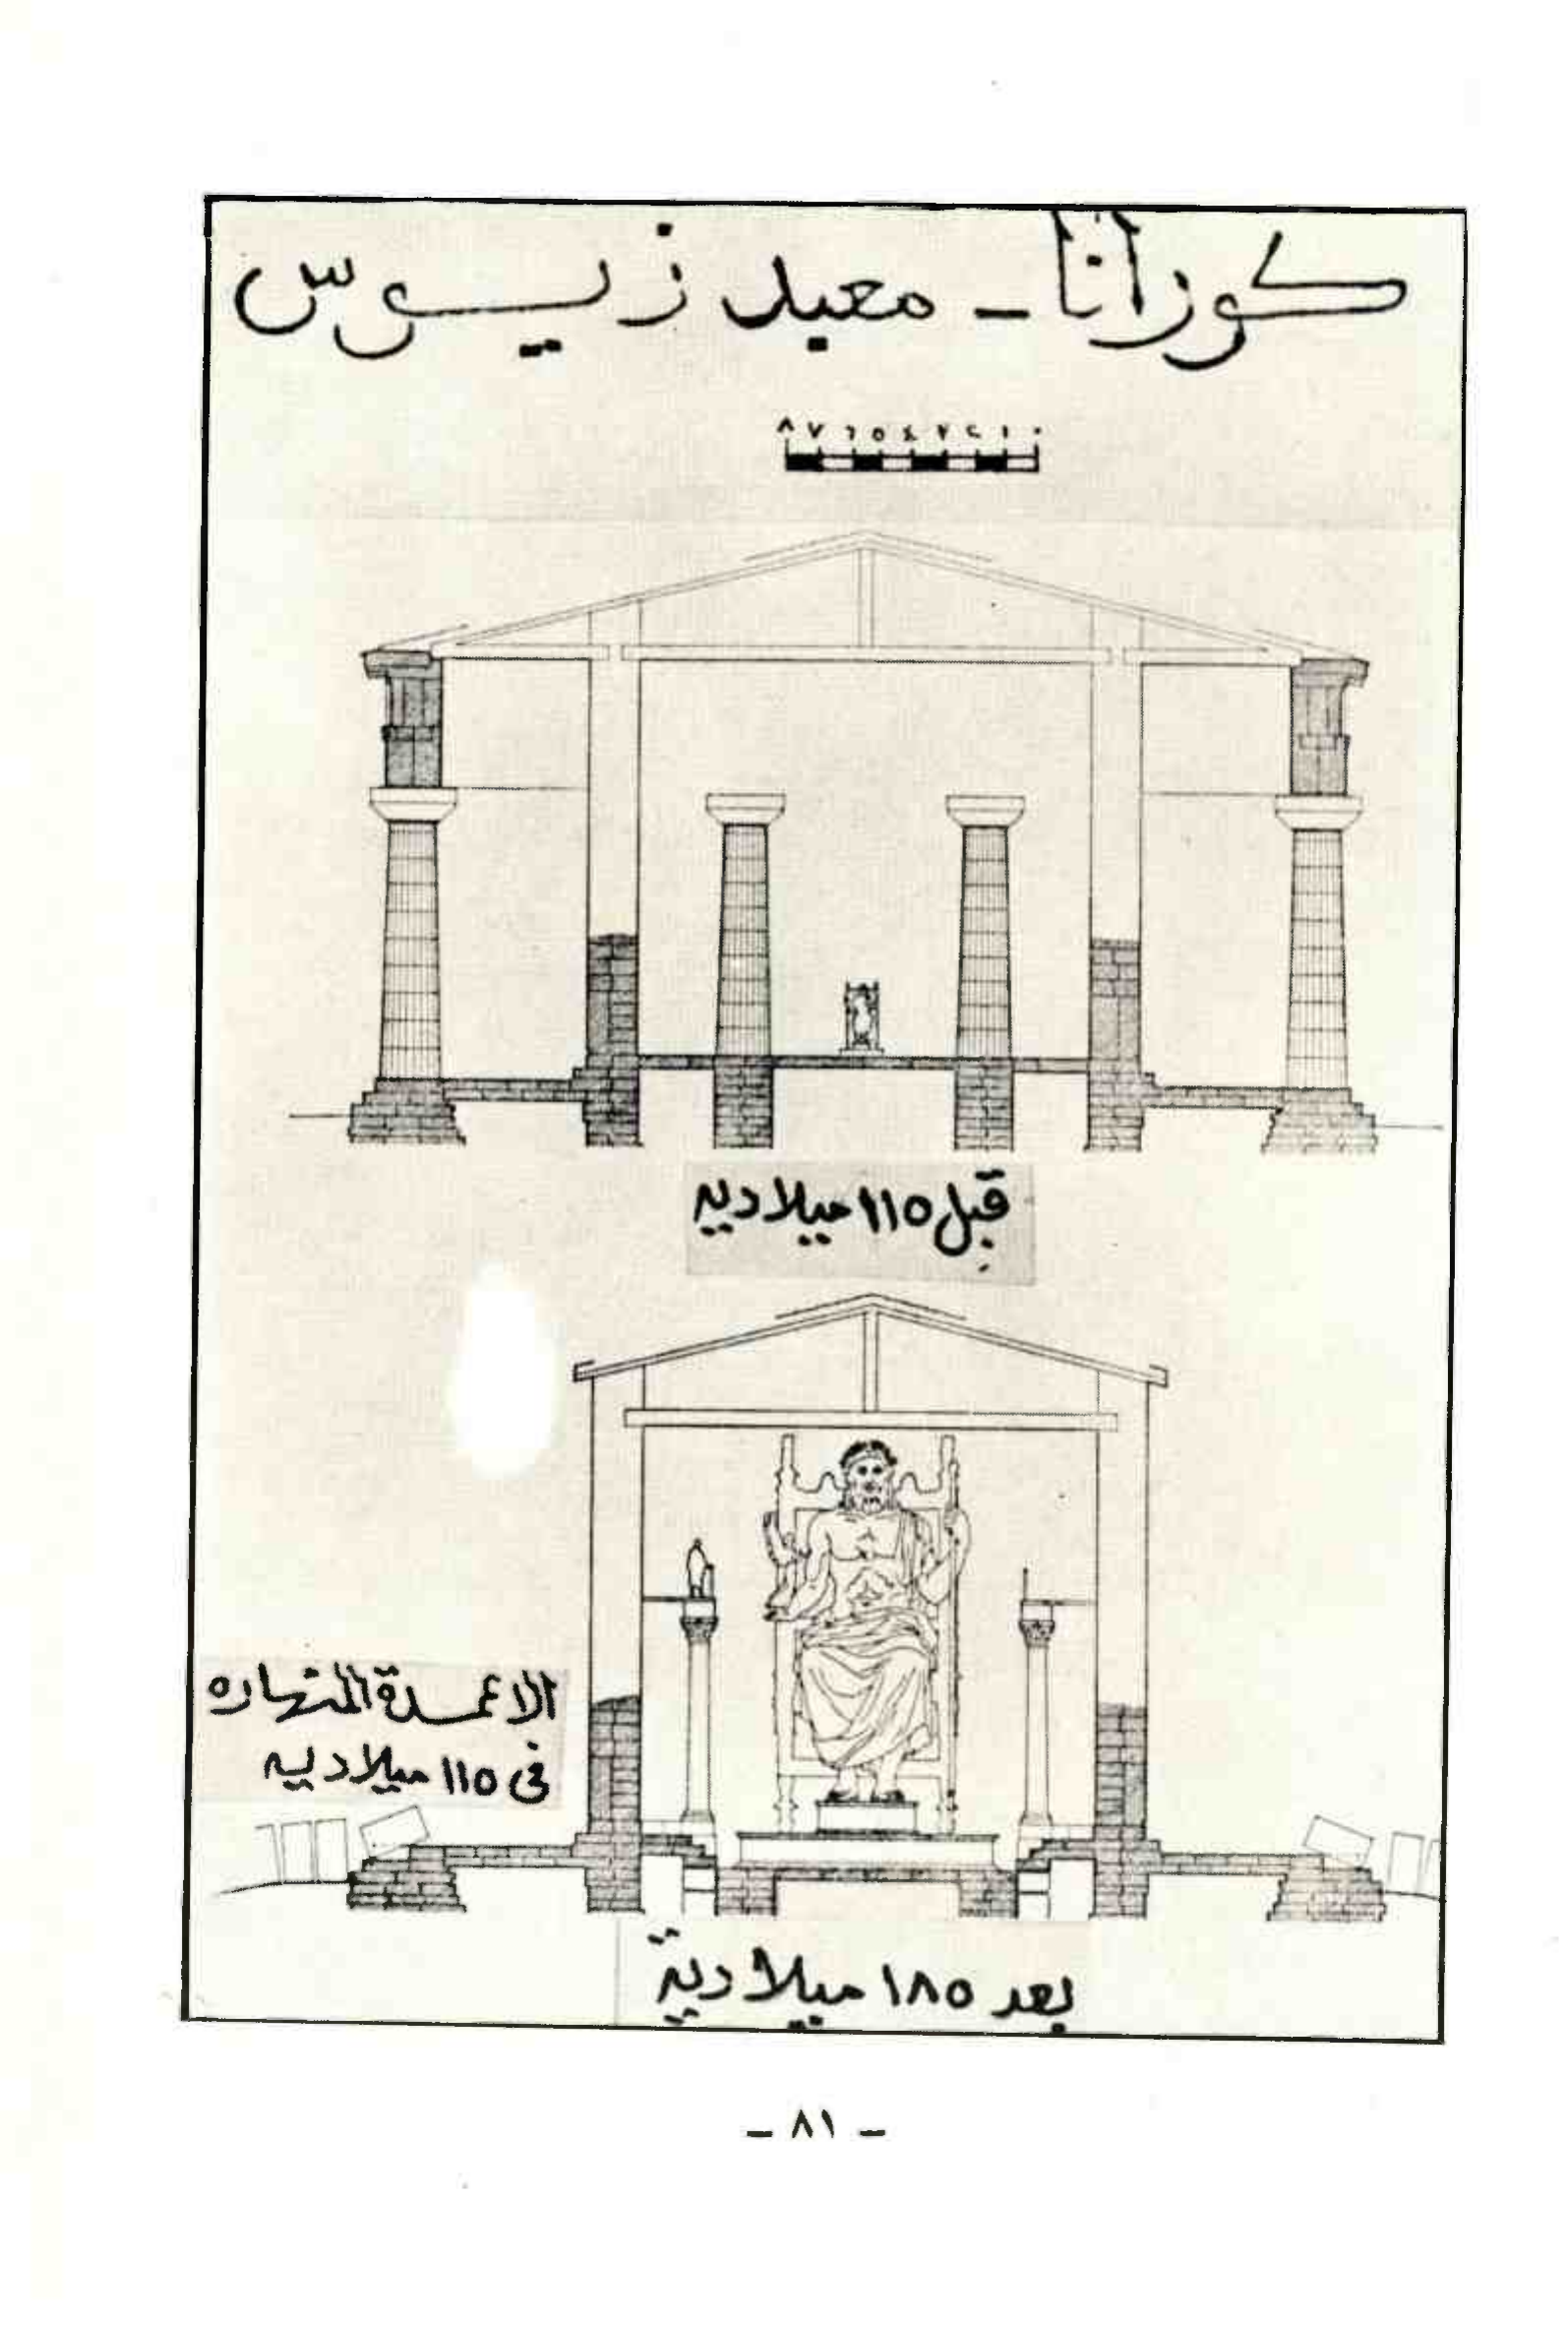 كورانا - معبد زيوس
٨ ٧ ٦ ٥ ٤ ٣ ٢ ١ ٠
قبل ١١٥ ميلاديه
الاعمدة المنهاره
فى ١١٥ ميلاديه
بعد ١٨٥ ميلادية
- ٨١ -